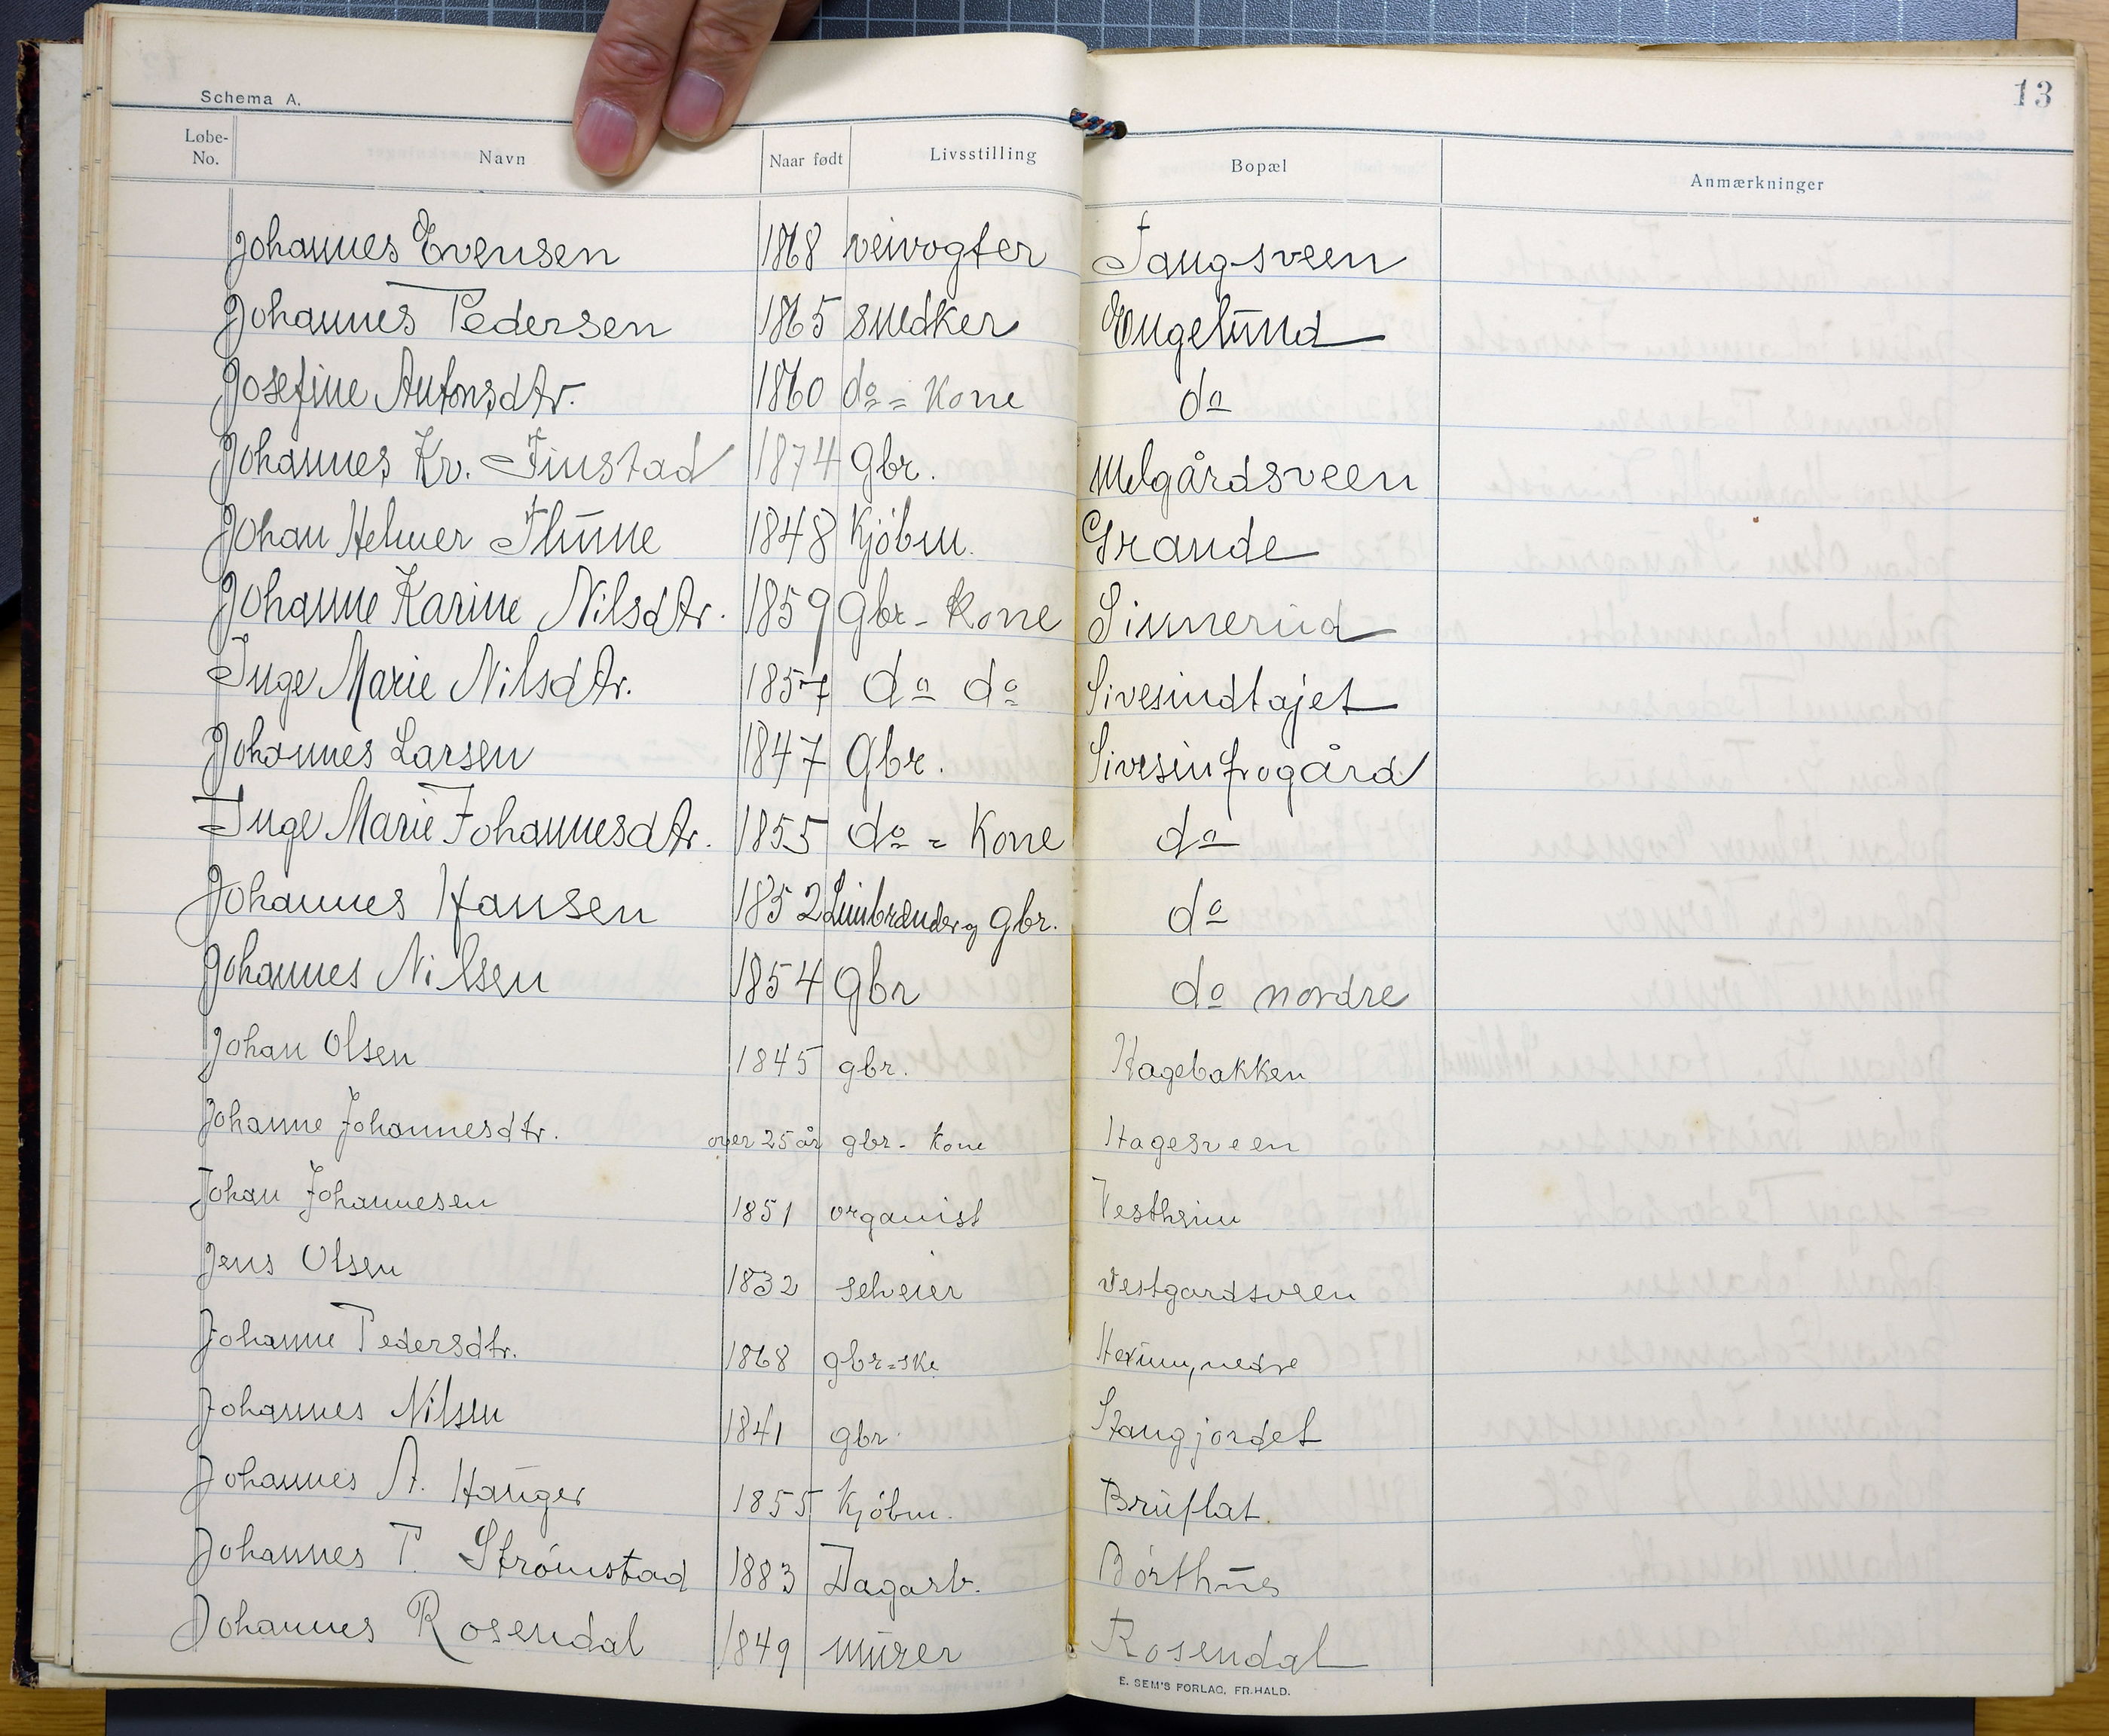 Schema A.
13
Løbe-No. Navn Naar født Livsstilling Bopæl Anmærkninger
Johannes Evensen 1868 veivogter Fangsveen
Johannes Pedersen 1865 snedker Engelund
Josefine Antonsdtr. 1860 do = Kone do
Johannes Kr. Finstad 1874 gbr. Melgårdsveen
Johan Helmer Thune 1848 Kjöbm. Grande
Johanne Karine Nilsdtr. 1859 gbr - Kone Linnerud
Inge Marie Nilsdtr. 1857 do do Sivesindtajet
Johannes Larsen 1847 gbr. Sivesinfrogård
Inge Marie Johannesdtr. 1855 do = Kone do
Johannes Hansen 1852 Limbrænder og gbr. do
Johannes Nilsen 1854 gbr do nordre
Johan Olsen 1845 gbr. Hagebakken
Johanne Johannesdtr. over 25 år gbr - Kone Hagesveen
Johan Johannesen 1851 organist Vestheim
Jens Olsen 1832 selveier Vestgardsveen
Johanne Pedersdtr. 1868 gbr=ske nedre
Johannes Nilsen 1841 gbr. Stangjordet
Johannes A. Hauger 1855 Kjöbm. Bruflat.
Johannes P. Strömstad 1883 Dagarb. Börthus
Johannes Rosendal 1849 murer Rosendal
E. SEM'S FORLAG, FR.HALD.